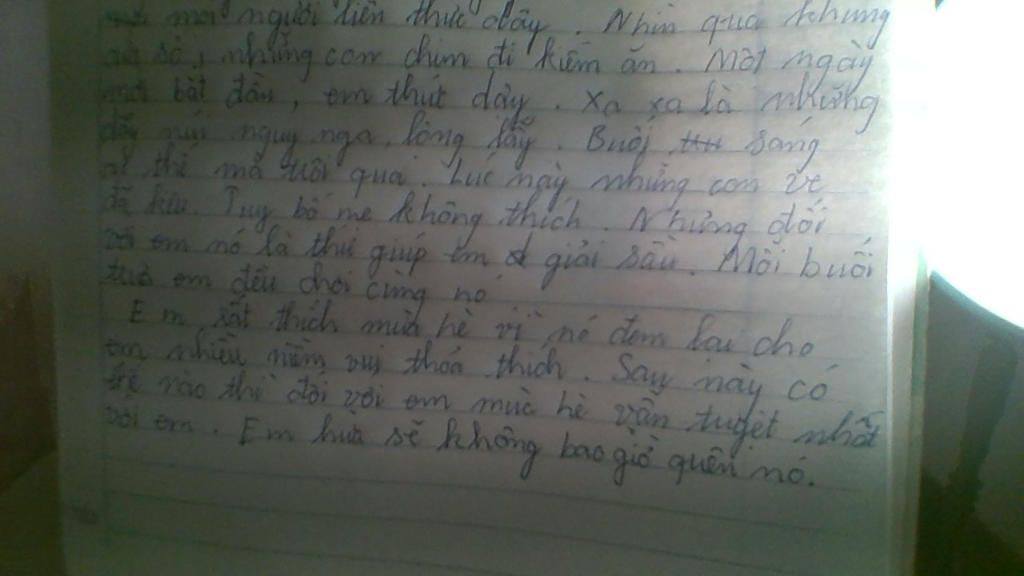 mọi người liền thức dậy. Nhìn qua khung
sổ, những con chim đi kiếm ăn. Một ngày
mới bắt đầu, em thức dậy. Xa xa là những
dãy núi nguy nga, lộng lẫy. Buổi sáng
thế mà trôi qua. Lúc này những con ve
đã kêu. Tuy bố mẹ không thích. Nhưng đối
với em nó là thứ giúp em giải sầu. Mỗi buổi
trưa em đều chơi cùng nó
Em rất thích mùa hè vì nó đem lại cho
em nhiều niềm vui thoả thích. Sau này có
thế nào thì đối với em mùa hè vẫn tuyệt nhất
với em. Em hứa sẽ không bao giờ quên nó.